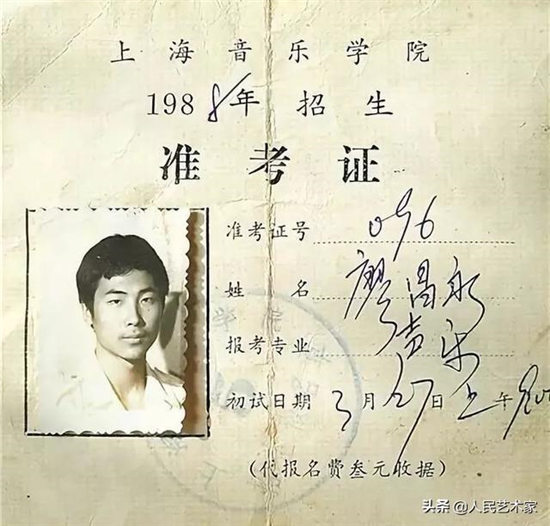 上海音乐学院
1988年招生
准考证
准考证号 096
姓名 廖昌永
报考专业 声乐
初试日期 3月27日上午
(代报名费叁元收据)
头条 @人民艺术家